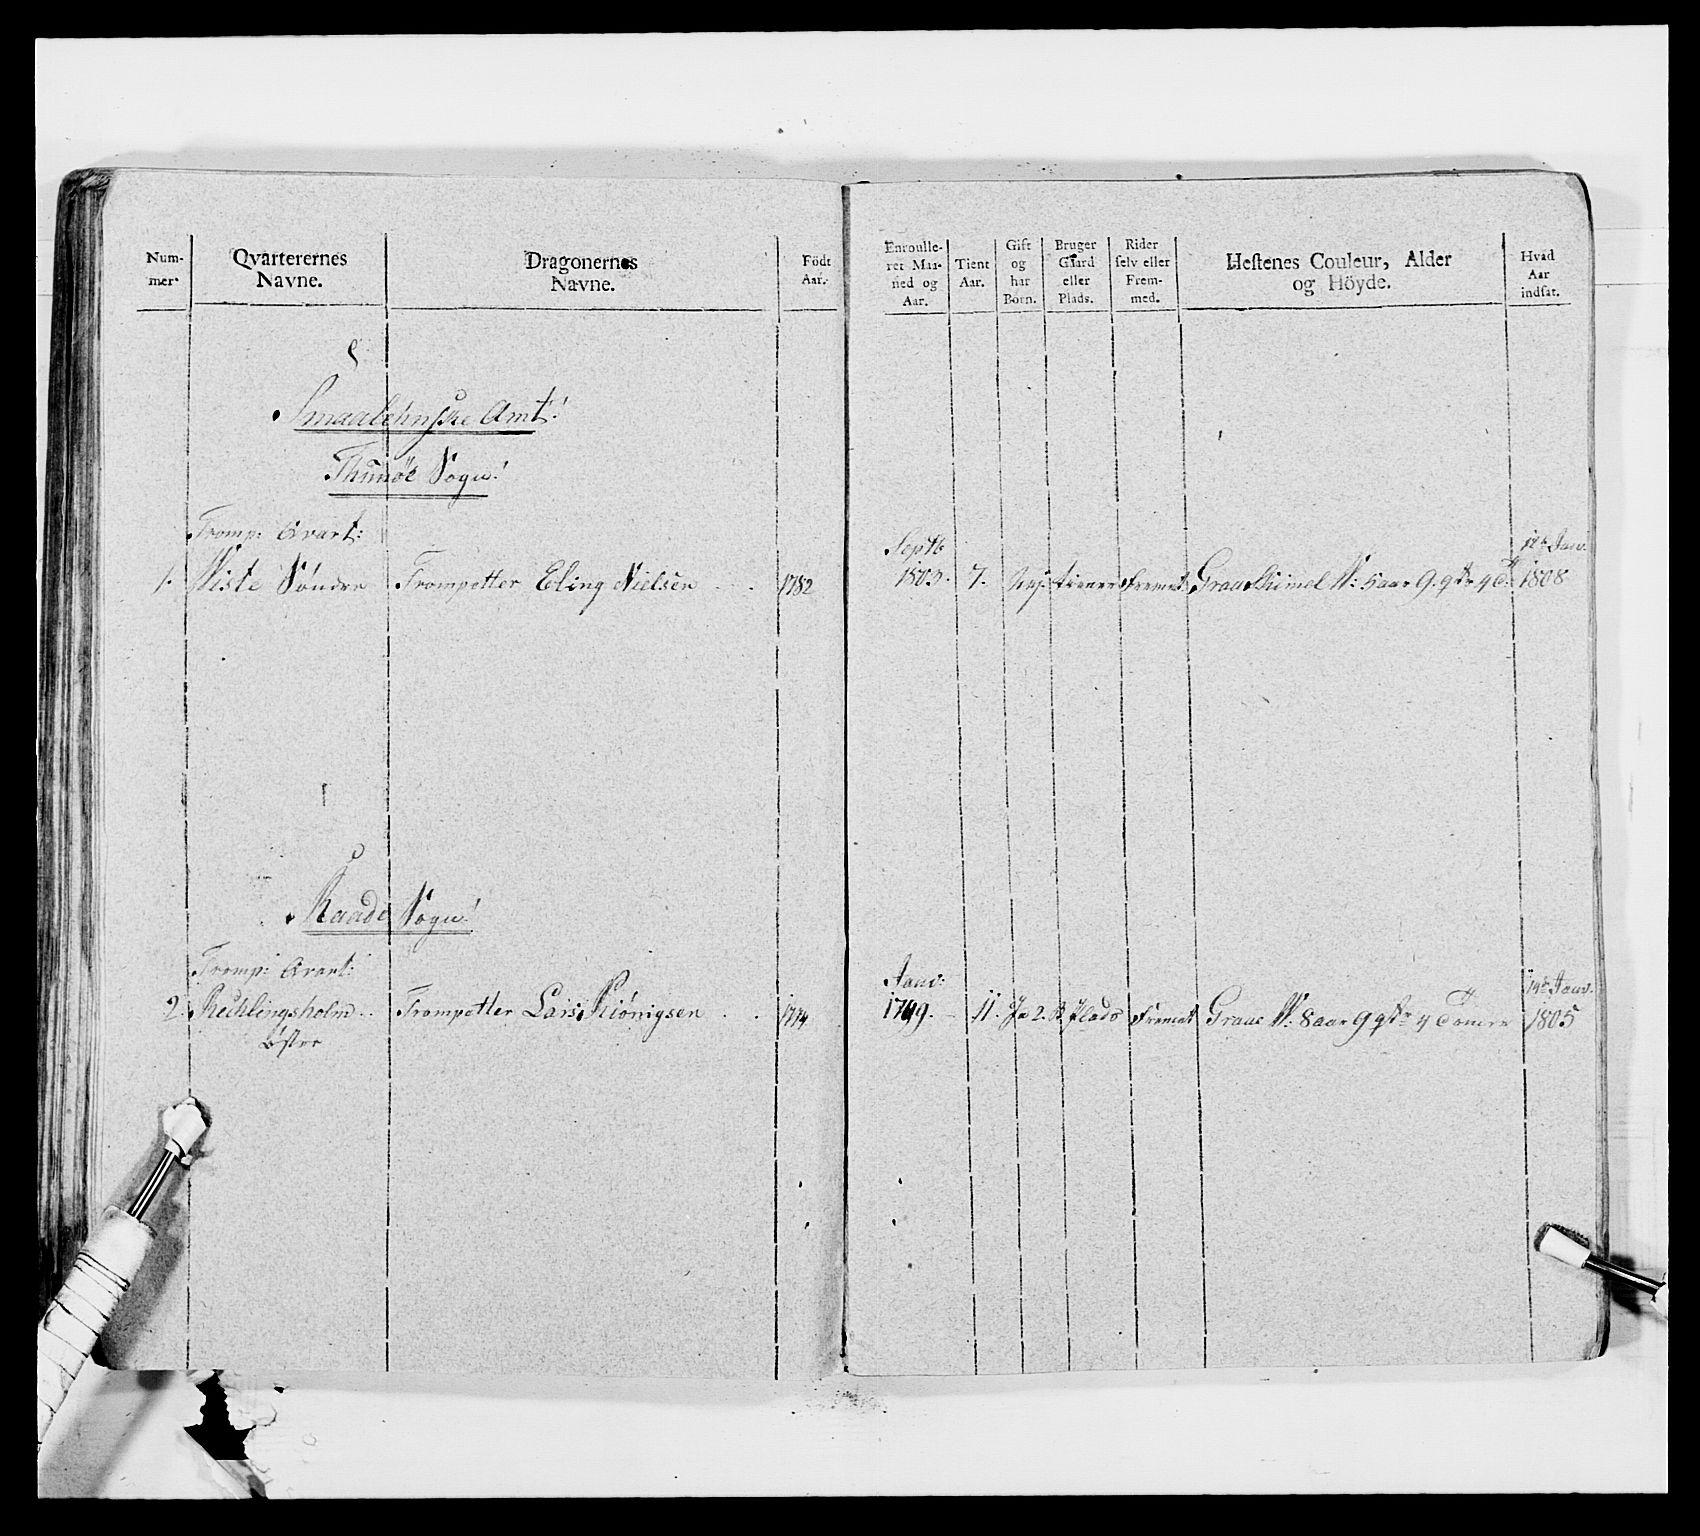 Num-
mer.
Qvarterernes
Navne.
Dragonernes
Navne.
Födt
Aar.
Enroulle-
ret Maa-
ned og
Aar.
Tient
Aar.
Gift
og
har
Börn.
Bruger
Gaard
eller
Plads.
Rider
selv eller
Frem-
med.
Hestenes Couleur, Alder
og Höyde.
Hvad
Aar
indsat.
Smaalehnske Amt!
Thunöe Sogn!
Tromp: Qvart:
1. Viste Söndre Trompetter Eling Nielsen 1782 Septb 1803. 7. Nej. tiener Fremed Graaskimel V: 5 aar 9. qtr 4 T. 12te Janv. 1808
Raade Sogn!
Tromp: Qvart:
2. Kechlingsholm Trompetter Lars Kiönigsen 1774 Janv: 1799. 11. Ja 2. B Plads Fremed Graae V: 8 aar 9 qtr 4 Tomer 14te Janv. 1805
öster